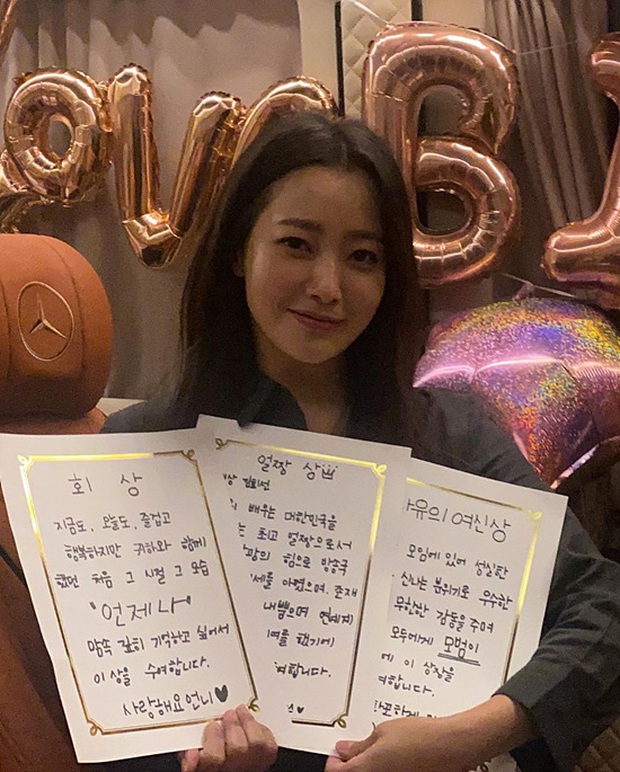 B
회 상
지금도, 오늘도, 즐겁고
행복하지만 귀하와 함께
했던 처음 그 시절 그 모습
"언제나"
맘속 깊히 기억하고 싶어서
이 상을 수여합니다.
사랑해요 언니♥
얼짱 상
상 김희선
배우는 대한민국을
는 최고 얼짱으로서
짱의 힘으로 방송국
세를 아꼈으며, 존재
내뿜으며 연예계
여를 했기에
여합니다.
자유의 여신상
모임에 있어 성실한
신나는 분위기로 우수한
무한한 감동을 주며
모두에게 모범이
에 이 상장을
여합니다.